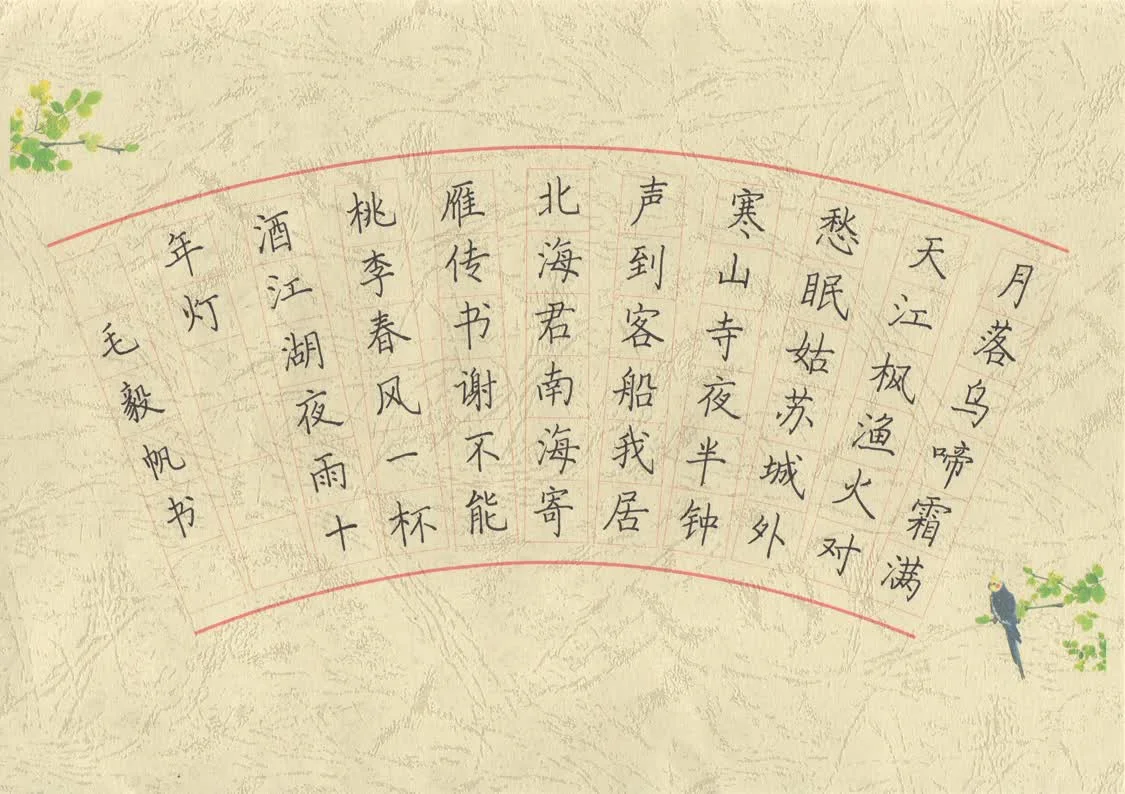 月落乌啼霜满
天江枫渔火对
愁眠姑苏城外
寒山寺夜半钟
声到客船我居
北海君南海寄
雁传书谢不能
桃李春风一杯
酒江湖夜雨十
年灯
毛毅帆书